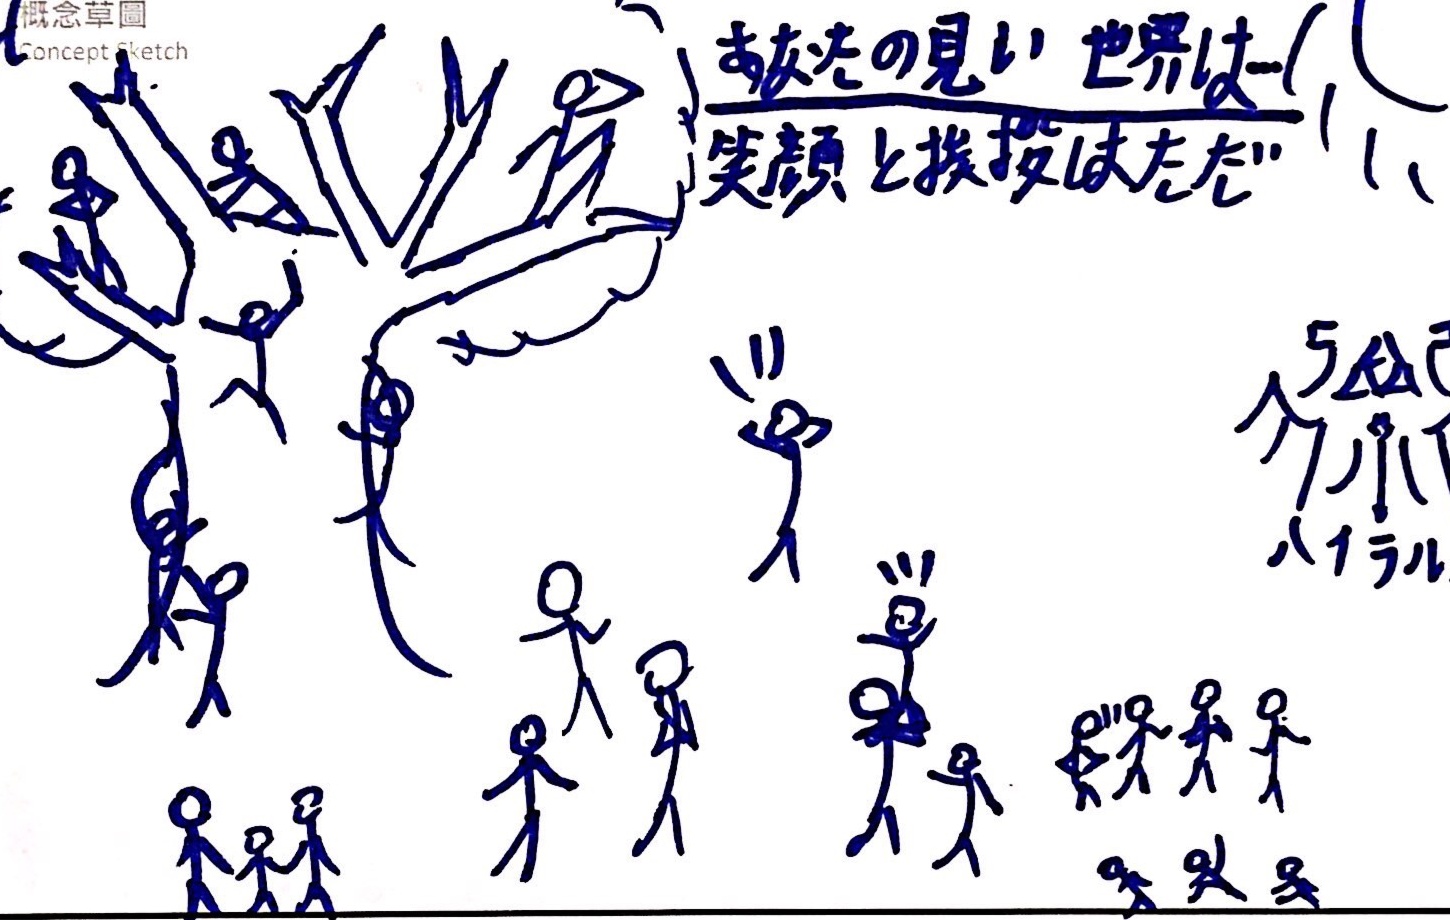 概念草圖
Concept Sketch
あなたの見い 世界は…
笑顔と挨拶はただ
ハイラル